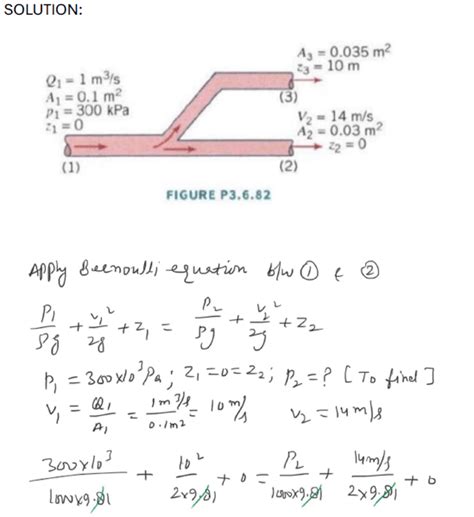 SOLUTION:
Q₁ = 1 m³/s
A₁ = 0.1 m²
p₁ = 300 kPa
z₁ = 0
(1)
A₃ = 0.035 m²
z₃ = 10 m
(3)
V₂ = 14 m/s
A₂ = 0.03 m²
z₂ = 0
(2)
FIGURE P3.6.82
Apply Beenoulli equation b/w ① & ②
P₁/ρg + v₁²/2g + z₁ = P₂/ρg + v₂²/2g + z₂
P₁ = 300x10³Pa ; z₁ = 0 = z₂ ; P₂ = ? [To find]
v₁ = Q₁/A₁ = 1m³/s / 0.1m² = 10 m/s v₂ = 14 m/s
300x10³/1000x9.81 + 10²/2x9.81 + 0 = P₂/1000x9.81 + 14m/s/2x9.81 + 0